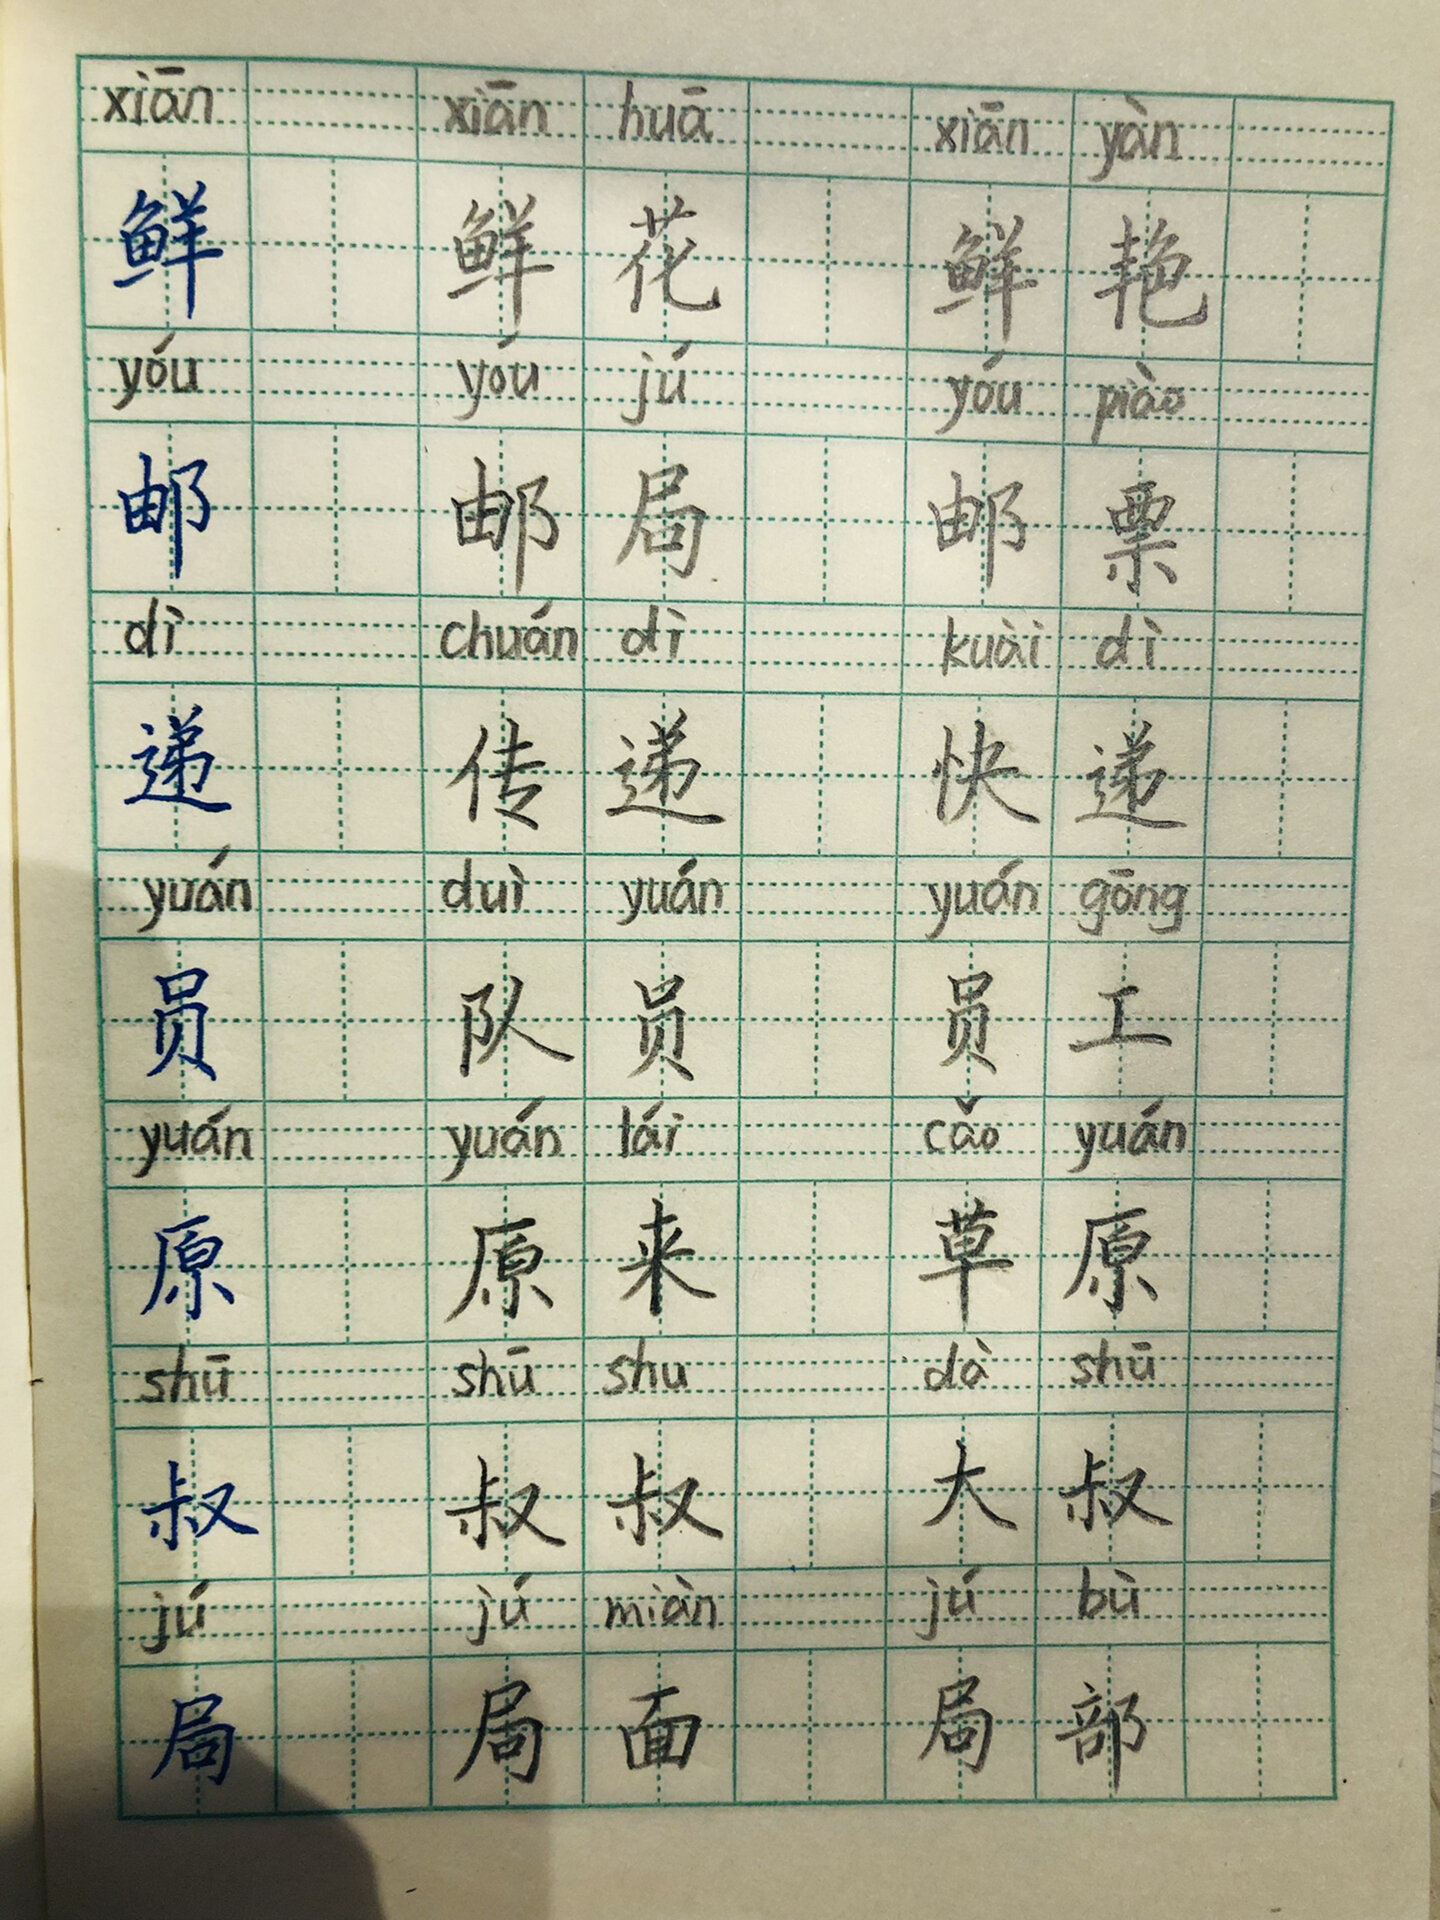 xiān xiān huā xiān yàn
鲜 鲜 花 鲜 艳
yóu yóu jú yóu piào
邮 邮 局 邮 票
dì chuán dì kuài dì
递 传 递 快 递
yuán duì yuán yuán gōng
员 队 员 员 工
yuán yuán lái cǎo yuán
原 原 来 草 原
shū shū shu dà shū
叔 叔 叔 大 叔
jú jú miàn jú bù
局 局 面 局 部